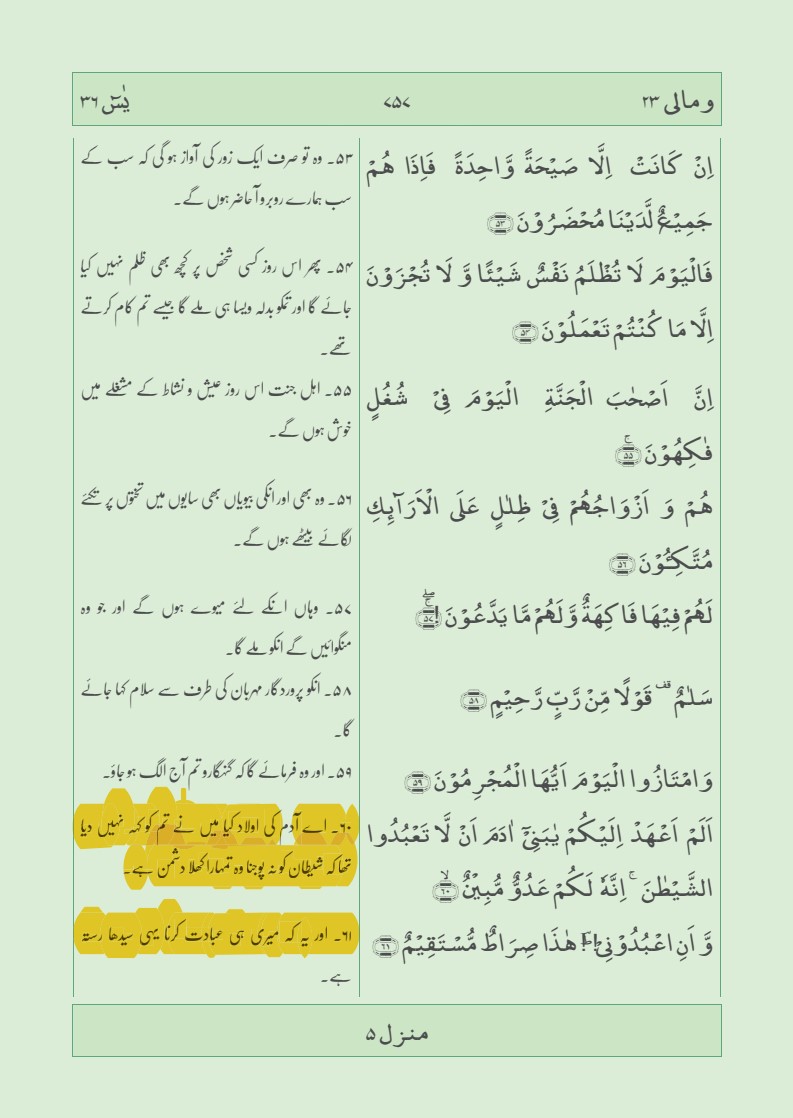 و مالی ۲۳
۷۵۷
یٰسٓ ۳۶
اِنْ كَانَتْ اِلَّا صَيْحَةً وَّاحِدَةً فَاِذَا هُمْ
جَمِيْعٌ لَّدَيْنَا مُحْضَرُوْنَ ۵۳
فَالْيَوْمَ لَا تُظْلَمُ نَفْسٌ شَيْـًٔا وَّ لَا تُجْزَوْنَ
اِلَّا مَا كُنْتُمْ تَعْمَلُوْنَ ۵۴
اِنَّ اَصْحٰبَ الْجَنَّةِ الْيَوْمَ فِيْ شُغُلٍ
فٰكِهُوْنَ ۵۵ ۚ
هُمْ وَ اَزْوَاجُهُمْ فِيْ ظِلٰلٍ عَلَى الْاَرَآىِٕكِ
مُتَّكِـُٔوْنَ ۵۶
لَهُمْ فِيْهَا فَاكِهَةٌ وَّ لَهُمْ مَّا يَدَّعُوْنَ ۵۷
سَلٰمٌ ۫ قَوْلًا مِّنْ رَّبٍّ رَّحِيْمٍ ۵۸
وَ امْتَازُوا الْيَوْمَ اَيُّهَا الْمُجْرِمُوْنَ ۵۹
اَلَمْ اَعْهَدْ اِلَيْكُمْ يٰبَنِيْٓ اٰدَمَ اَنْ لَّا تَعْبُدُوا
الشَّيْطٰنَ ۚ اِنَّهٗ لَكُمْ عَدُوٌّ مُّبِيْنٌ ۶۰ ۙ
وَّ اَنِ اعْبُدُوْنِيْ ؔؕ هٰذَا صِرَاطٌ مُّسْتَقِيْمٌ ۶۱
۵۳۔ وہ تو صرف ایک زور کی آواز ہو گی کہ سب کے
سب ہمارے روبرو آ حاضر ہوں گے۔
۵۴۔ پھر اس روز کسی شخص پر کچھ بھی ظلم نہیں کیا
جائے گا اور تمکو بدلہ ویسا ہی ملے گا جیسے تم کام کرتے
تھے۔
۵۵۔ اہل جنت اس روز عیش و نشاط کے مشغلے میں
خوش ہوں گے۔
۵۶۔ وہ بھی اور انکی بیویاں بھی سایوں میں تختوں پر تکئے
لگائے بیٹھے ہوں گے۔
۵۷۔ وہاں انکے لئے میوے ہوں گے اور جو وہ
منگوائیں گے انکو ملے گا۔
۵۸۔ انکو پروردگار مہربان کی طرف سے سلام کہا جائے
گا۔
۵۹۔ اور وہ فرمائے گا کہ گنہگارو تم آج الگ ہو جاؤ۔
۶۰۔ اے آدم کی اولاد کیا میں نے تم کو کہہ نہیں دیا
تھا کہ شیطان کو نہ پوجنا وہ تمہارا کھلا دشمن ہے۔
۶۱۔ اور یہ کہ میری ہی عبادت کرنا یہی سیدھا رستہ
ہے۔
منزل ۵